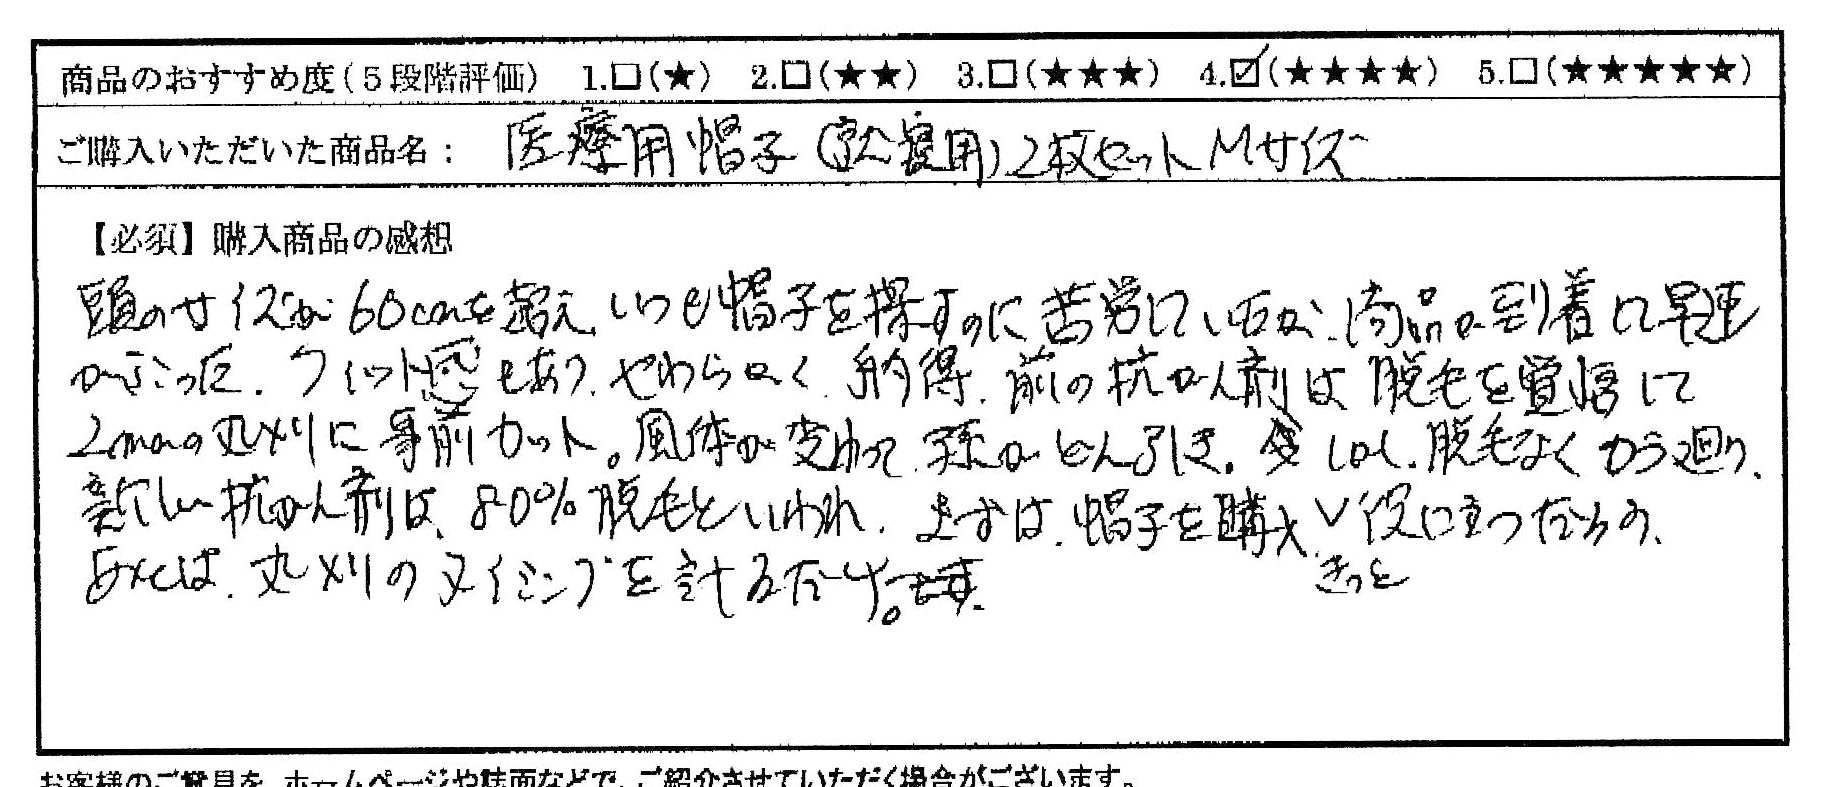 商品のおすすめ度(5段階評価) 1.□(★) 2.□(★★) 3.□(★★★) 4.☑(★★★★) 5.□(★★★★★)
ご購入いただいた商品名: 医療用帽子(就寝用)2枚セットMサイズ
【必須】購入商品の感想
頭のサイズが60cmを超え、いつも帽子を探すのに苦労しているが、商品が到着して早速
かぶった。フィット感もあり、やわらかく、納得。前の抗がん剤は、脱毛を覚悟して
2mmの丸刈りに事前カット。風体が変わって、孫がどん引き。しかし、脱毛なくから廻り、
新しい抗がん剤は、80%脱毛といわれ、まずは、帽子を購入、きっと役に立つだろう、
あとは、丸刈りのタイミングを計るだけ。
お客様のご意見を、ホームページや誌面などで、ご紹介させていただく場合がございます。